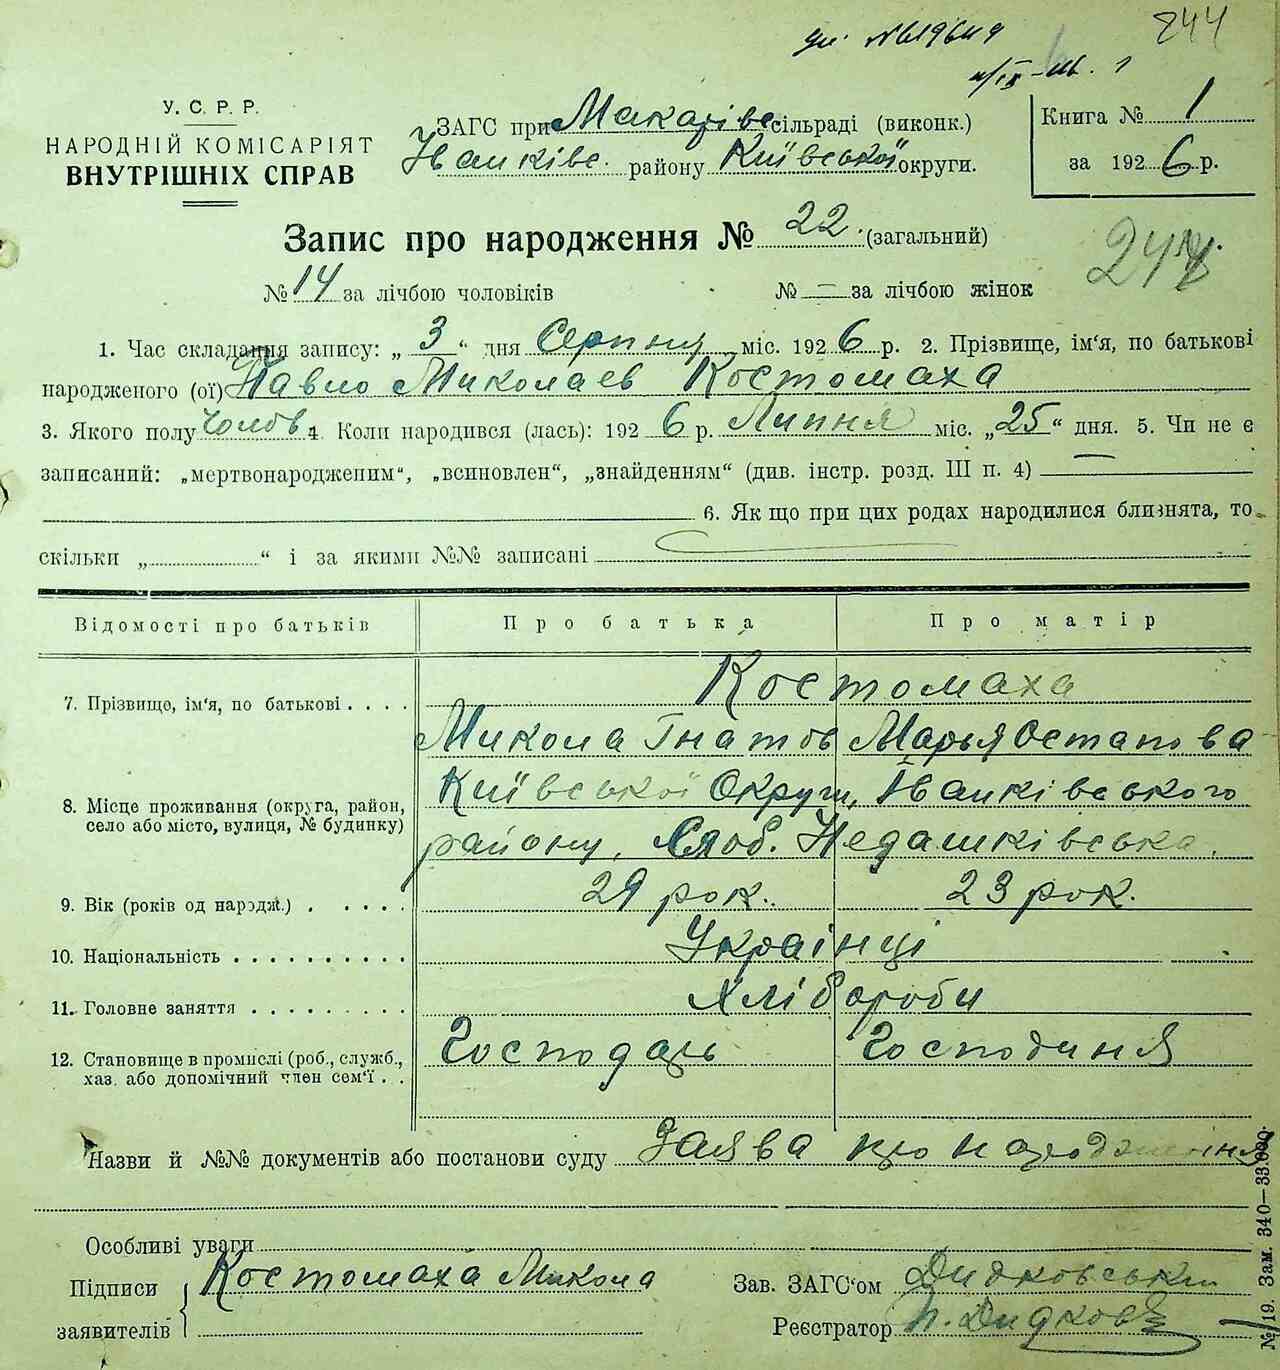 244
У. С. Р. Р.
НАРОДНІЙ КОМІСАРІЯТ
ВНУТРІШНІХ СПРАВ
ЗАГС при Макарівс. сільраді (виконк.)
Іванківс. району Київської округи.
Книга № 1
за 1926 р.
Запис про народження № 22. (загальний)
№ 14 за лічбою чоловіків № — за лічбою жінок
244
1. Час складання запису: „3“ дня Серпня міс. 1926 р. 2. Прізвище, ім‘я, по батькові
народженого (ої) Павло Миколаєв Костомаха
3. Якого полу Чолов. 4. Коли народився (лась): 1926 р. Липня міс. „25“ дня. 5. Чи не є
записаний: „мертвонародженим“, „всиновлен“, „знайденням“ (див. інстр. розд. III п. 4) —
6. Як що при цих родах народилися близнята, то
скільки „ “ і за якими №№ записані
Відомості про батьків Про батька Про матір
7. Прізвище, ім‘я, по батькові . . . . Костомаха
Микола Гнатов Марья Остапова
8. Місце проживання (округа, район, село або місто, вулиця, № будинку) Київської Округи, Іванківського
району, Слоб. Недашківська.
9. Вік (років од народж.) . . . . . 29 рок. 23 рок.
10. Національність . . . . . . . . . . Українці
11. Головне заняття . . . . . . . . . Хлібороби
12. Становище в промислі (роб., служб., Господарь Господиня
хаз. або допомічний член сем‘ї . .
Назви й №№ документів або постанови суду Заява про народження
Особливі уваги
Підписи заявителів Костомаха Микола
Зав. ЗАГС‘ом Дидковський
Реєстратор П. Дидков
№ 19. Зам. 340—33.000.